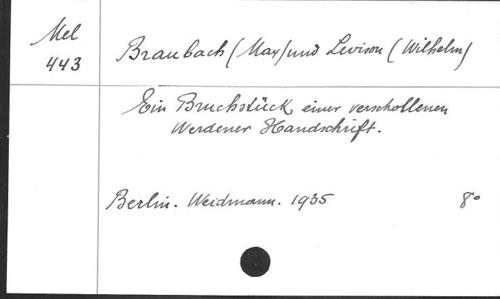 Mel
443
Braubach (Max) und Levison (Wilhelm)
Ein Bruchstück einer verschollenen
Werdener Handschrift.
Berlin. Weidmann. 1935 8°